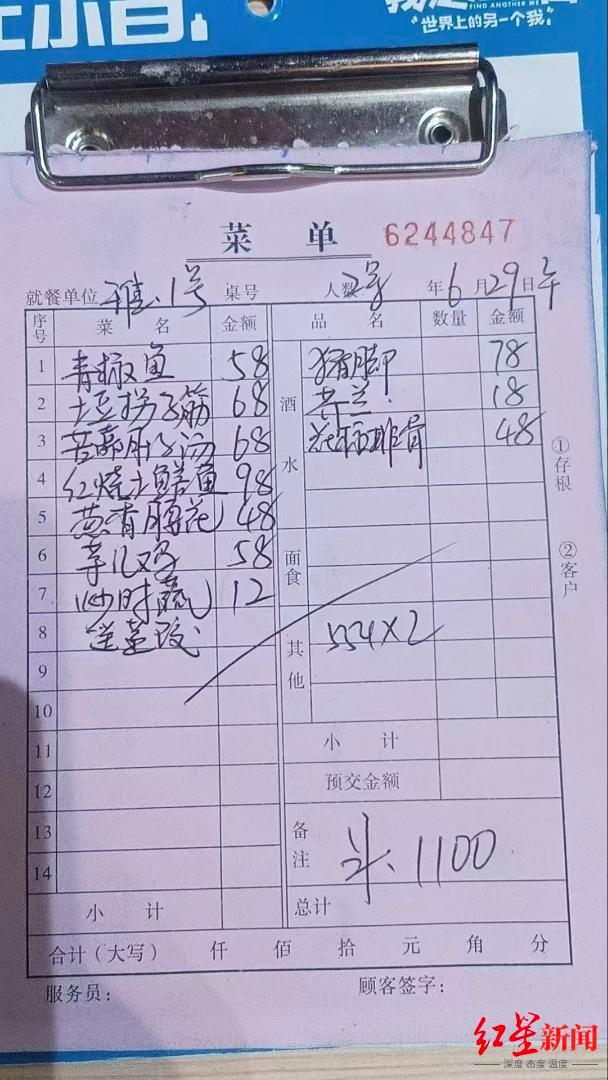 小百
FIND ANOTHER ME
"世界上的另一个我"
菜 单 6244847
就餐单位 雅1号 桌号 人数 2号 年 6 月 29 日 午
序号 菜 名 金额 品 名 数量 金额
1 青椒鱼 58 猪脚 78
2 土豆拐子筋 68 酒水 芥兰 18
3 苦藠肚子汤 68 花福排骨 48
4 红烧土鳝鱼 98
5 葱香腰花 48
6 芋儿鸡 58 面食
7 炒时蔬 12
8 送 其他 554×2
9
10
11 小 计
12 预交金额
13 备注 斗、1100
14
小 计 总计
合计(大写) 仟 佰 拾 元 角 分
服务员: 顾客签字:
①存根
②客户
红星新闻
深度 态度 温度